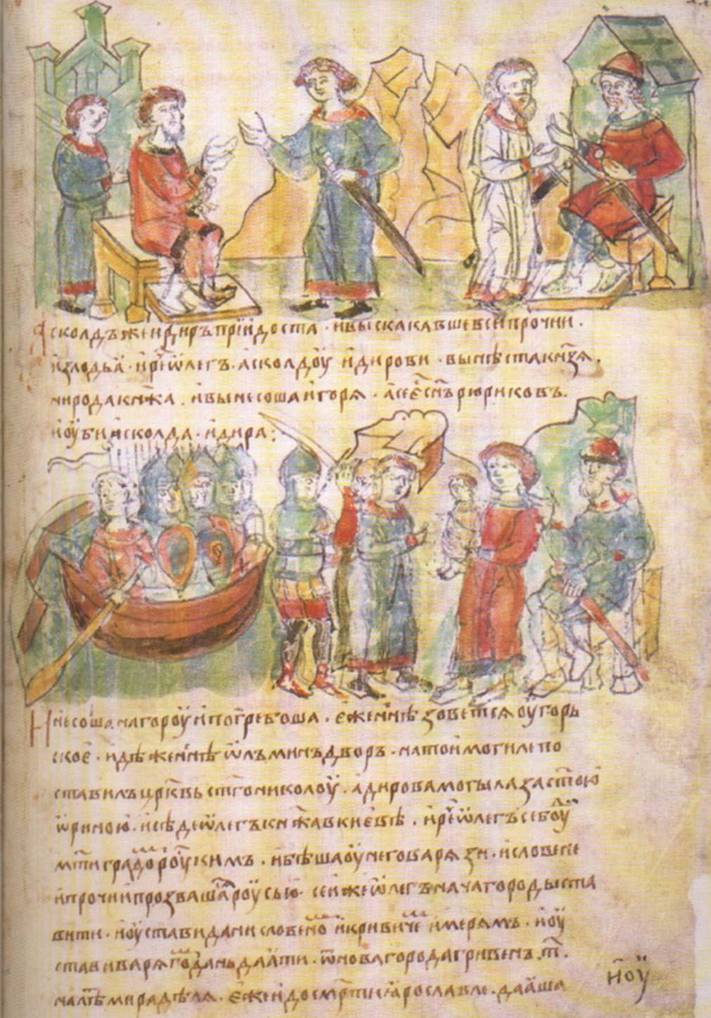 Асколдъ же и Диръ прїидоста · и выскакавше вси прочии ·
из лодьѧ · и реⷱ҇ Ѡлегъ · Асколдоу и Дирови · вы нѣста кнѧзѧ ·
ни рода кнѧжа · и вынесоша Игорѧ · а се єⷭ҇ сн҃ъ Рюриковъ ·
и оубиша Асколда и Дира :
И несоша на гороу и погребоша · єже н҃нѣ зоветсѧ Оугорь
скоє · идѣже н҃нѣ Ѡлъминъ дворъ · на тои могиле по
ставилъ црк҃вь ст҃го Николоу · а Дирова могыла за ст҃ою
Ѡриною · и сѣде Ѡлегъ кнѧжа в Киевѣ · и реⷱ҇ Ѡлегъ се боуⷣ
мт҃и градоⷨ роуⷭ҇кимъ · и бѣша оу него варѧзи · и словене
и прочии прозвашаⷭ҇ Роусью · сеи же Ѡлегъ нача городы ста
вити · и оустави дани словеноⷨ и кривичеⷨ и мерѧмъ · и оу
стави варѧгоⷨ дань даѧти · ѿ Новагорода гривенъ · т҃ ·
на лт҃ѣ мира дѣлѧ · єже и до смр҃ти Ѧрославле · даѧша
и оу